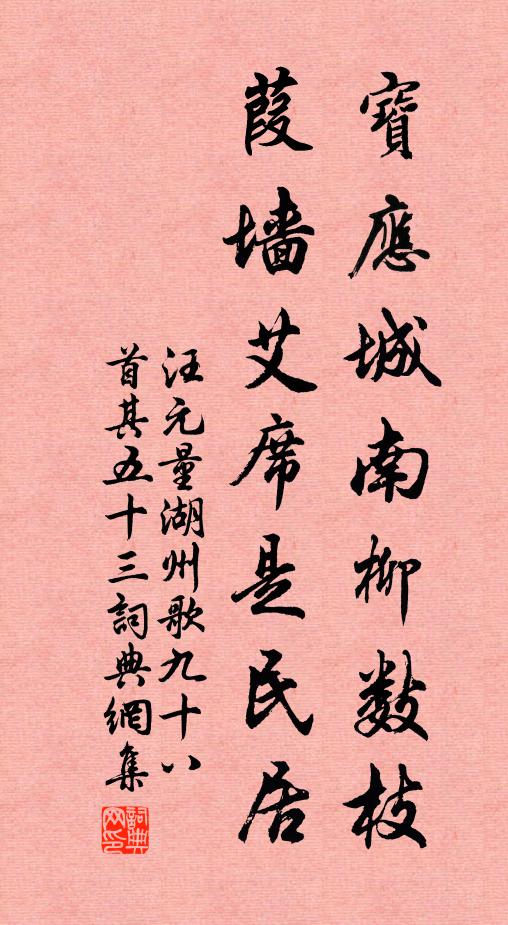 寶應城南柳數枝
葭墻艾席是民居
汪元量湖州歌九十八
首其五十三詞典網集
詞典
网印